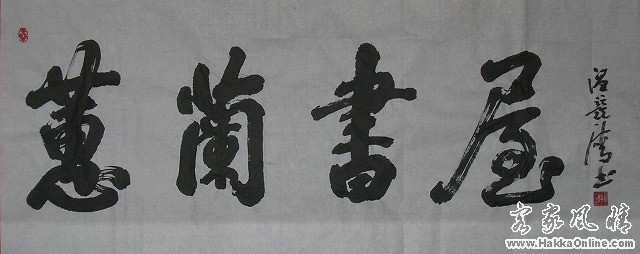 蕙蘭書屋
客家风情
www.HakkaOnline.com